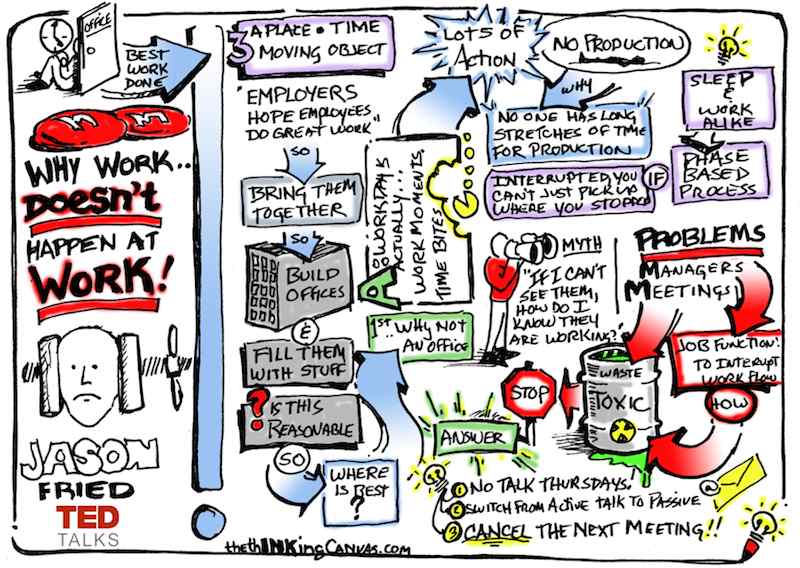 OFFICE
BEST
WORK
DONE
M M
WHY WORK..
DOESN'T
HAPPEN AT
WORK!
JASON
FRIED
TED
TALKS
3 A PLACE • TIME
MOVING OBJECT
"EMPLOYERS
HOPE EMPLOYEES
DO GREAT WORK"
SO
BRING THEM
TOGETHER
SO
BUILD
OFFICES
&
FILL THEM
WITH STUFF
? IS THIS
REASONABLE
SO
WHERE
IS BEST
?
1st.. WHY NOT
AN OFFICE
A: WORKDAY IS
ACTUALLY...
WORK MOMENTS,
TIME BITES
LOTS OF
ACTION
NO PRODUCTION
WHY
NO ONE HAS LONG
STRETCHES OF TIME
FOR PRODUCTION
INTERRUPTED YOU
CAN'T JUST PICK UP
WHERE YOU STOPPED
IF
SLEEP
&
WORK
ALIKE
PHASE
BASED
PROCESS
MYTH
"IF I CAN'T
SEE THEM,
HOW DO I
KNOW THEY
ARE WORKING?"
PROBLEMS
MANAGERS
MEETINGS
JOB FUNCTION!
TO INTERUPT
WORK FLOW
HOW
WASTE
TOXIC
STOP
ANSWER
1 NO TALK THURSDAYS!
2 SWITCH FROM ACTIVE TALK TO PASSIVE @
3 CANCEL THE NEXT MEETING!!
thethINKingCANVAS.COM